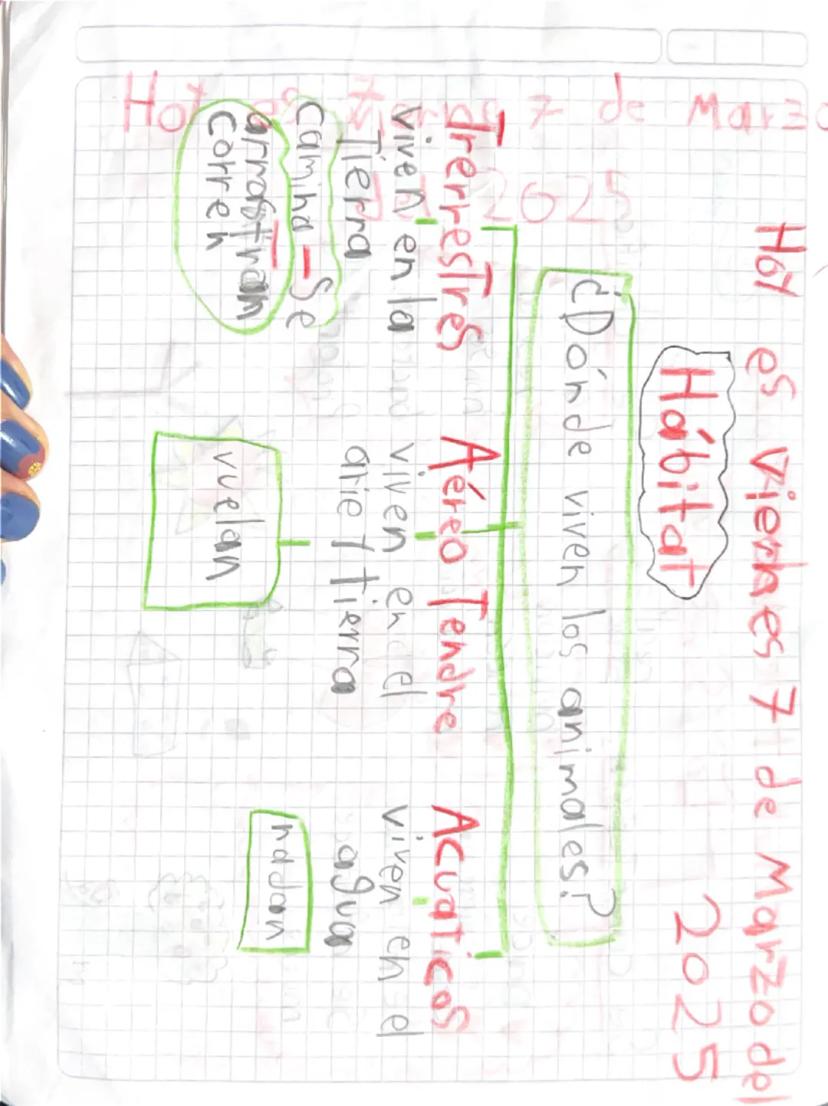 Hoy es viernes 7 de Marzo del
2025
Hábitat
¿Dónde viven los animales?
Trerrestres
viven en la
Tierra
Camina - Se
arrastran
Corren
Aéreo Tendre
viven en el
aire / tierra
vuelan
Acuaticos
viven en el
agua
nadan
Hoy es
7 de Marzo
2025